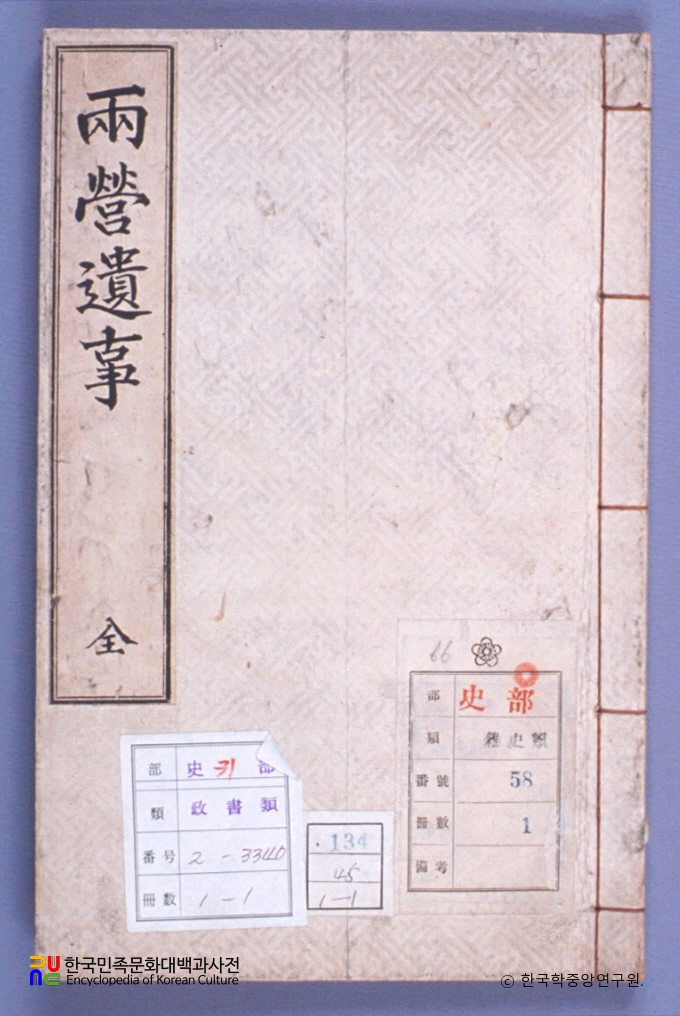 兩營遺事
全
66
部 史部
類 雜史類
番號 58
冊數 1
備考
部 史 귀 部
類 政書類
番号 2-3340
冊数 1-1
134
45
1-1
한국민족문화대백과사전
Encyclopedia of Korean Culture
© 한국학중앙연구원.